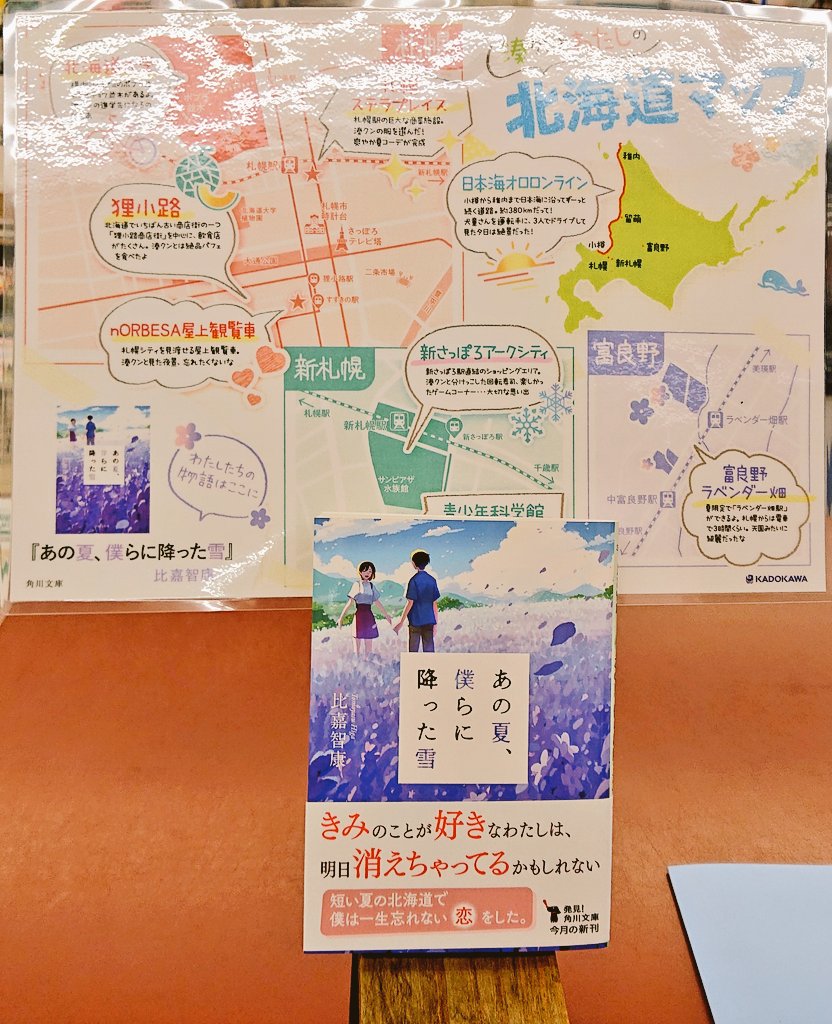 北海道マップ
ステラプレイス
札幌駅の巨大な商業施設。
湊クンの服を選んだ!
爽やか夏コーデが完成
札幌駅
新札幌駅
狸小路
北海道でいちばん古い商店街の一つ
「狸小路商店街」を中心に、飲食店
がたくさん。湊クンとは絶品パフェ
を食べたよ
北海道大学
植物園
札幌市
時計台
さっぽろ
テレビ塔
大通公園
狸小路駅
二条市場
すすきの駅
nORBESA屋上観覧車
札幌シティを見渡せる屋上観覧車。
湊クンと見た夜景、忘れたくないな
日本海オロロンライン
小樽から稚内まで日本海に沿ってずーっと
続く道路。約380kmだって!
犬童さんを運転手に、3人でドライブして
見た夕日は絶景だった!
稚内
留萌
小樽
富良野
札幌
新札幌
新札幌
札幌駅
新札幌駅
新さっぽろ駅
千歳駅
サンピアザ
水族館
青少年科学館
新さっぽろアークシティ
新さっぽろ駅直結のショッピングエリア。
湊クンと分けっこした回転寿司、楽しかっ
たゲームコーナー・・・大切な思い出
富良野
美瑛駅
ラベンダー畑駅
中富良野駅
富良野
ラベンダー畑
夏限定で「ラベンダー畑駅」
ができるよ。札幌からは電車
で3時間くらい。天国みたいに
綺麗だったな
わたしたちの
物語はここに
あの夏、
僕らに
降った雪
『あの夏、僕らに降った雪』
比嘉智康
角川文庫
KADOKAWA
あの夏、
僕らに
降った雪
比嘉智康
Tomoyasu Higa
きみのことが好きなわたしは、
明日消えちゃってるかもしれない
短い夏の北海道で
僕は一生忘れない恋をした。
発見!
角川文庫
今月の新刊